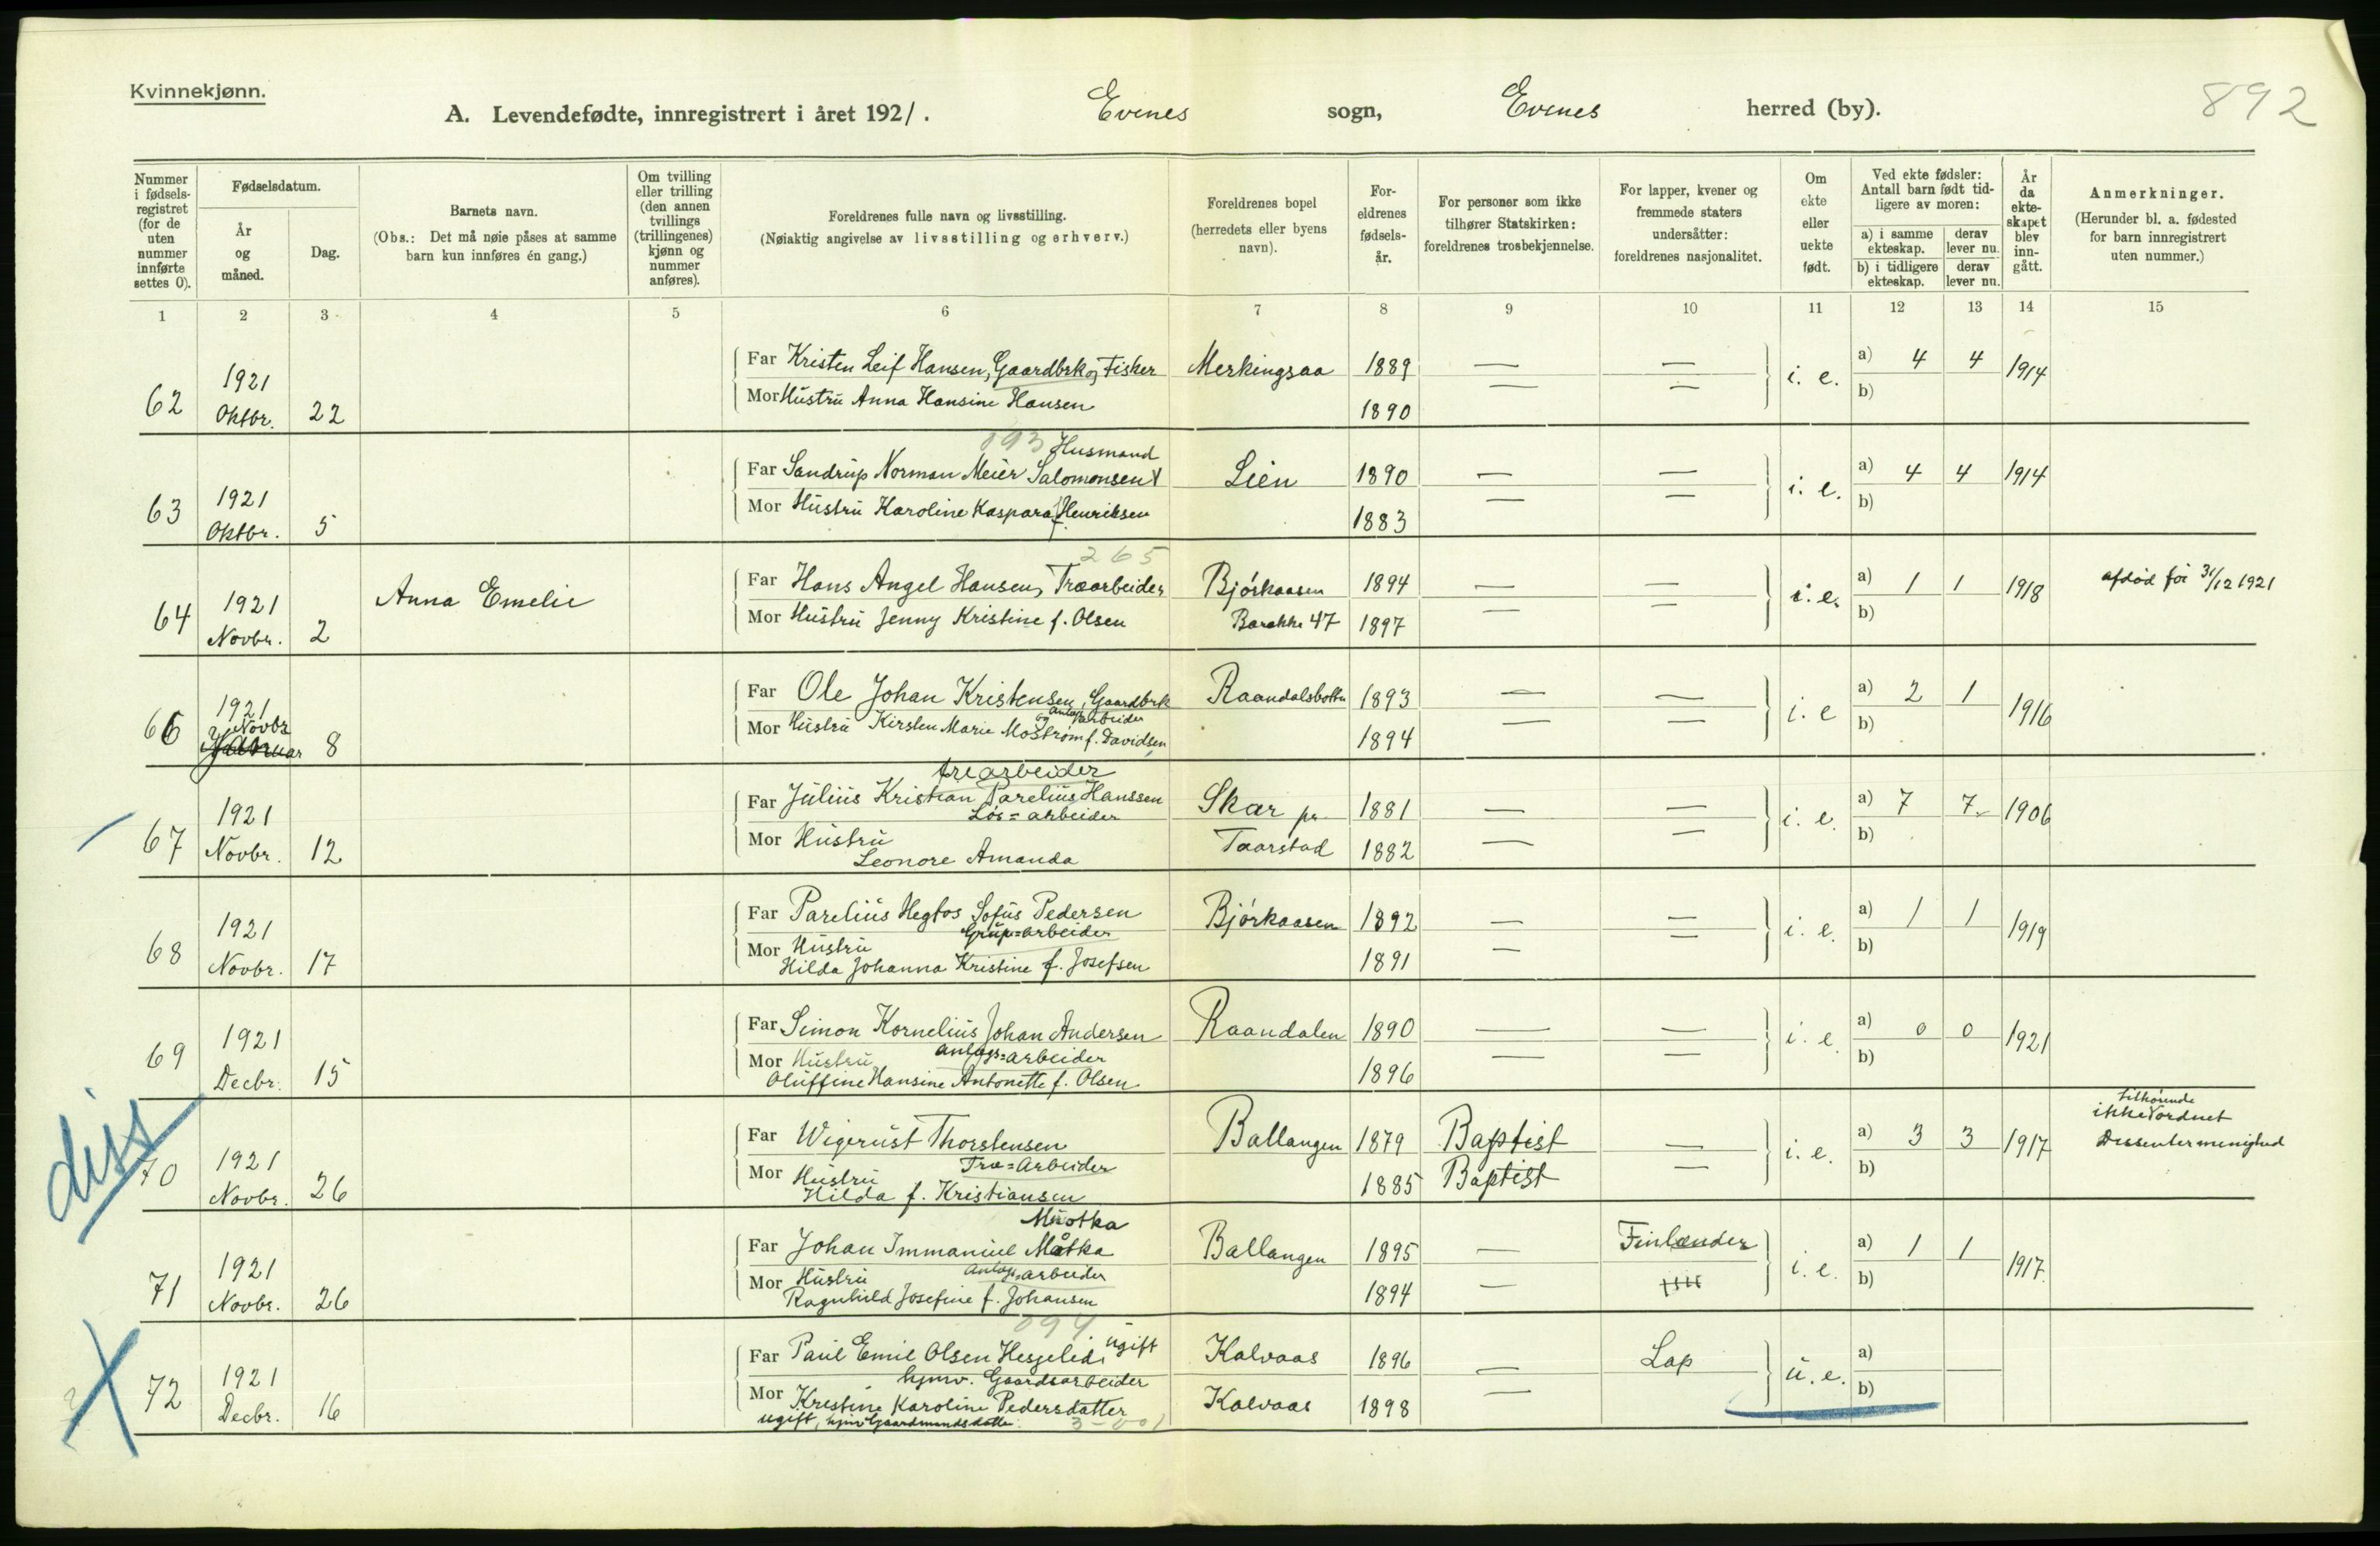 Kvinnekjønn.
A. Levendefødte, innregistrert i året 1921. Evenes sogn, Evenes herred (by). 892
Nummer i fødsels-registret (for de uten nummer innførte settes 0).
Fødselsdatum.
År og måned.
Dag.
Barnets navn.
(Obs.: Det må nøie påses at samme barn kun innføres én gang.)
Om tvilling eller trilling (den annen tvillings (trillingenes) kjønn og nummer anføres).
Foreldrenes fulle navn og livsstilling.
(Nøiaktig angivelse av livsstilling og erhverv.)
Foreldrenes bopel (herredets eller byens navn).
For-eldrenes fødsels-år.
For personer som ikke tilhører Statskirken: foreldrenes trosbekjennelse.
For lapper, kvener og fremmede staters undersåtter: foreldrenes nasjonalitet.
Om ekte eller uekte født.
Ved ekte fødsler: Antall barn født tid-ligere av moren:
a) i samme ekteskap. derav lever nu.
b) i tidligere ekteskap. derav lever nu.
År da ekte-skapet blev inn-gått.
Anmerkninger.
(Herunder bl. a. fødested for barn innregistrert uten nummer.)
1 2 3 4 5 6 7 8 9 10 11 12 13 14 15
62 1921 Oktbr. 22
Far Kristen Leif Hansen, Gaardbrk og Fisker Merkingsaa 1889 — — i. e. a) 4 4 1914
Mor Hustru Anna Hansine Hansen 1890 — — b)
893 Husmand
63 1921 Oktbr. 5
Far Sandrup Norman Meier Salomonsen Lien 1890 — — i. e. a) 4 4 1914
Mor Hustru Karoline Kaspara f. Henriksen 1883 — — b)
265
64 1921 Novbr. 2 Anna Emelie
Far Hans Angel Hansen, Træarbeider Bjørkaasen 1894 — — i. e. a) 1 1 1918 afdød før 31/12 1921
Mor Hustru Jenny Kristine f. Olsen Barakke 47 1897 — — b)
66 1921 Novbr 8
Far Ole Johan Kristensen, Gaardbrk Raandalsbotten 1893 — — i. e a) 2 1 1916
og Anlægsarbeider
Mor Hustru Kirsten Marie Mostrøm f. Davidsen 1894 — — b)
trearbeider
67 1921 Novbr. 12
Far Julius Kristian Parelius Hanssen Skar pr. 1881 — — i. e. a) 7 7 1906
Løs=arbeider
Mor Hustru Taarstad 1882 — — b)
Leonore Amanda
68 1921 Novbr. 17
Far Parelius Hegtos Sofus Pedersen Bjørkaasen 1892 — — i. e. a) 1 1 1919
Grube=arbeider
Mor Hustru 1891 — — b)
Hilda Johanna Kristine f. Josefsen
69 1921 Decbr. 15
Far Simon Kornelius Johan Andersen Raandalen 1890 — — i. e. a) 0 0 1921
Anlægs=arbeider
Mor Hustru 1896 — — b)
Oluffine Hansine Antonette f. Olsen
diss
70 1921 Novbr. 26
Far Wigerust Thorstensen Ballangen 1879 Baptist — i. e. a) 3 3 1917 tilhørende ikke ordnet Dissentermenighed
Træ=Arbeider
Mor Hustru 1885 Baptist — b)
Hilda f. Kristiansen
Muotka
71 1921 Novbr. 26
Far Johan Immanuel Måtka Ballangen 1895 — Finlænder i. e. a) 1 1 1917.
Anlægsarbeider
Mor Hustru 1894 — b)
Ragnhild Josefine f. Johansen
894
72 1921 Decbr. 16
Far Paul Emil Olsen Hesjelid ugift Kalvaas 1896 — Lap u. e. a)
hjmv. Gaardsarbeider
Mor Kristine Karoline Pedersdatter Kalvaas 1898 — b)
ugift, hjmv Gaardmandsdatter.